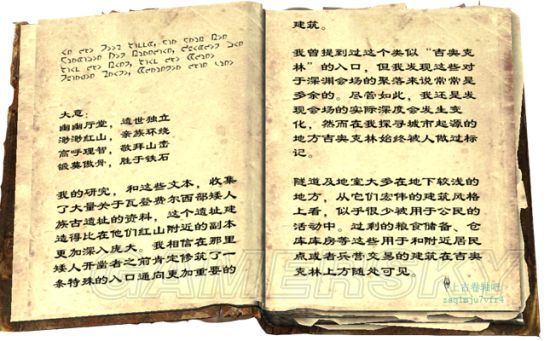 大意：
幽幽厅堂，遗世独立
渺渺红山，亲族环绕
高呼理智，敬拜山击
锻莫傲骨，胜于铁石
我的研究，和这些文本，收集
了大量关于瓦登费尔西部矮人
族古遗址的资料，这个遗址建
造得比在他们红山附近的副本
更加深入庞大。我相信在那里
矮人开凿者之前肯定修筑了一
条特殊的入口通向更加重要的
建筑。
我曾提到过这个类似“吉奥克
林”的入口，但我发现这些对
于深渊会场的聚落来说常常是
多余的。尽管如此，我还是发
现会场的实际深度会发生变
化，然而在我探寻城市起源的
地方吉奥克林始终被人做过标
记。
隧道及地室大多在地下较浅的
地方，从它们宏伟的建筑风格
上看，似乎很少被用于公民的
活动中。过剩的粮食储备、仓
库库房等这些用于和附近居民
点或者兵营交易的建筑在吉奥
克林上方随处可见。
上古卷轴吧
zaqimju7vfr4
GAMERSKY